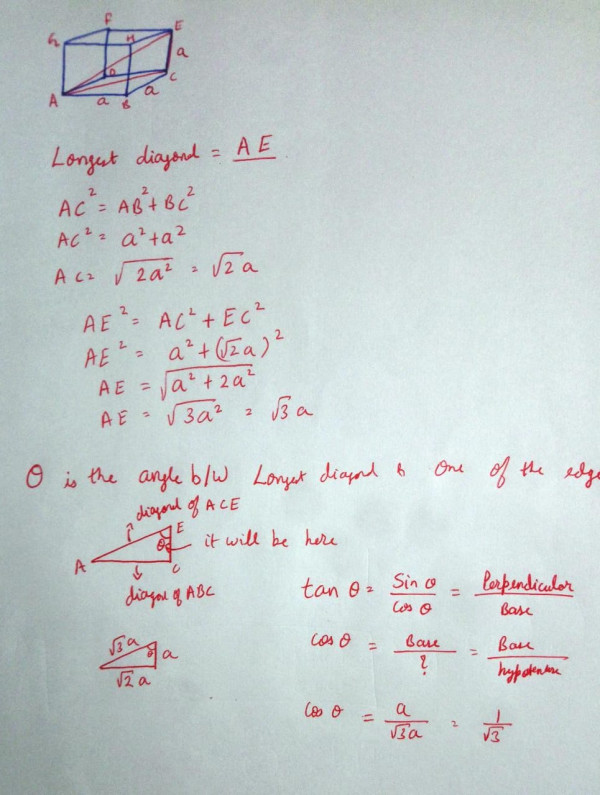 F E
G H
a
D C
A a B a
Longest diagonal = AE
AC² = AB² + BC²
AC² = a² + a²
AC = √2a² = √2 a
AE² = AC² + EC²
AE² = a² + (√2a)²
AE = √a² + 2a²
AE = √3a² = √3 a
θ is the angle b/w Longest diagonal & One of the edge
diagonal of ACE
E
θ it will be here
A C
diagonal of ABC
tan θ = Sin θ / cos θ = Perpendicular / Base
√3a θ a
√2 a
cos θ = Base / ? = Base / hypotenuse
cos θ = a / √3a = 1 / √3